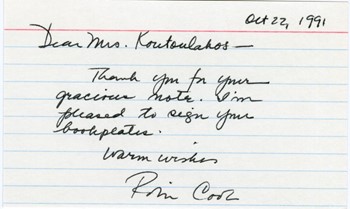 Oct 22, 1991
Dear Mrs. Koutoulakos —
Thank you for your
gracious note. I'm
pleased to sign your
bookplates.
Warm wishes
Robin Cook